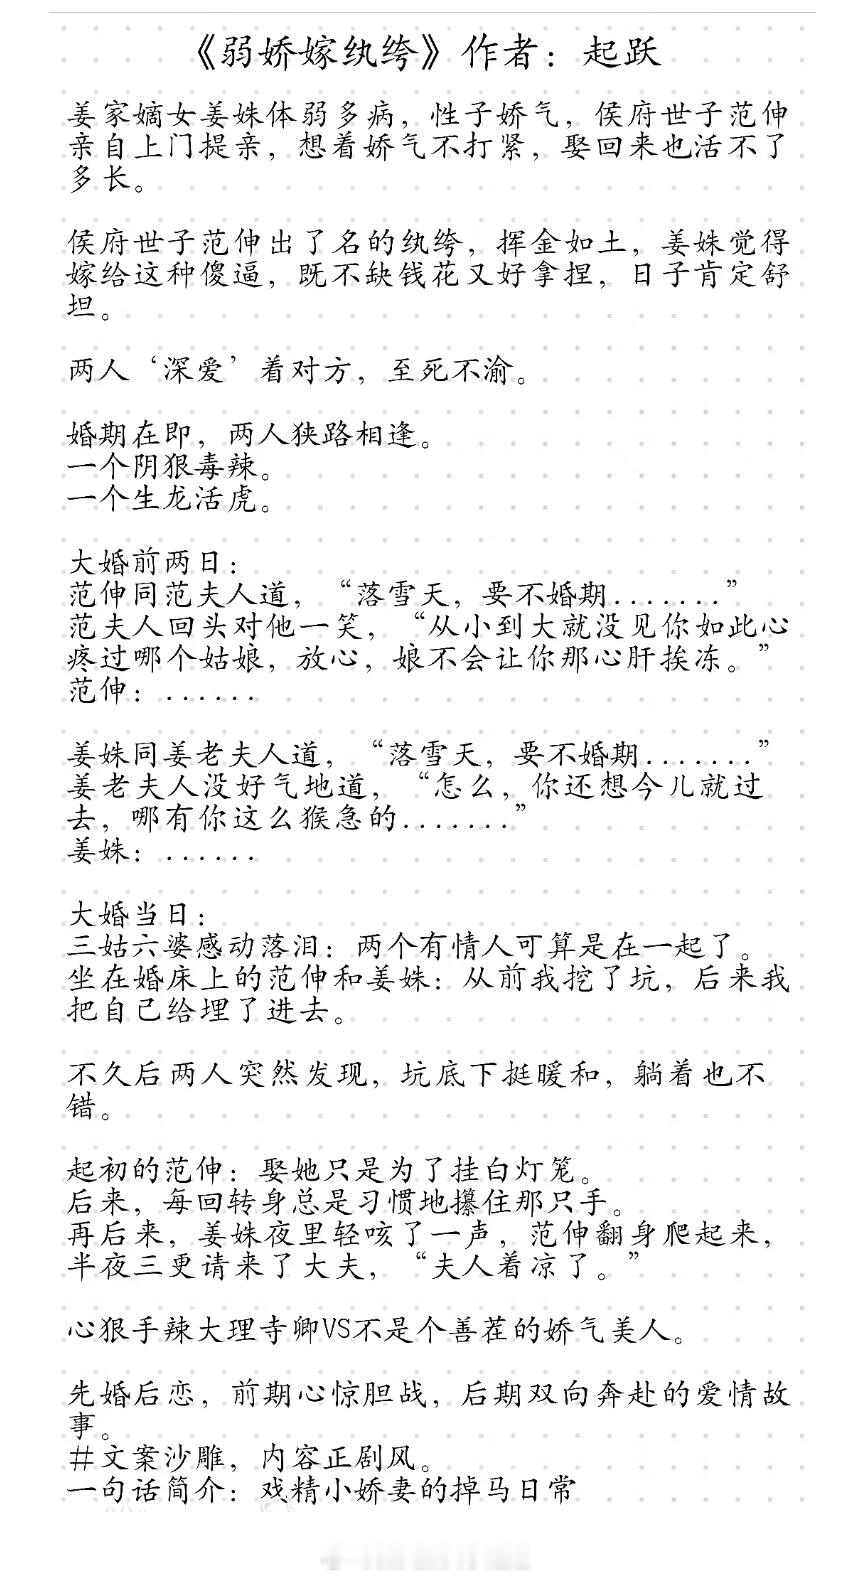 《弱娇嫁纨绔》作者：起跃
姜家嫡女姜姝体弱多病，性子娇气，侯府世子范伸
亲自上门提亲，想着娇气不打紧，娶回来也活不了
多长。
侯府世子范伸出了名的纨绔，挥金如土，姜姝觉得
嫁给这种傻逼，既不缺钱花又好拿捏，日子肯定舒
坦。
两人‘深爱’着对方，至死不渝。
婚期在即，两人狭路相逢。
一个阴狠毒辣。
一个生龙活虎。
大婚前两日：
范伸同范夫人道，“落雪天，要不婚期.......”
范夫人回头对他一笑，“从小到大就没见你如此心
疼过哪个姑娘，放心，娘不会让你那心肝挨冻。”
范伸：......
姜姝同姜老夫人道，“落雪天，要不婚期.......”
姜老夫人没好气地道，“怎么，你还想今儿就过
去，哪有你这么猴急的.......”
姜姝：......
大婚当日：
三姑六婆感动落泪：两个有情人可算是在一起了。
坐在婚床上的范伸和姜姝：从前我挖了坑，后来我
把自己给埋了进去。
不久后两人突然发现，坑底下挺暖和，躺着也不
错。
起初的范伸：娶她只是为了挂白灯笼。
后来，每回转身总是习惯地攥住那只手。
再后来，姜姝夜里轻咳了一声，范伸翻身爬起来，
半夜三更请来了大夫，“夫人着凉了。”
心狠手辣大理寺卿VS不是个善茬的娇气美人。
先婚后恋，前期心惊胆战，后期双向奔赴的爱情故
事。
#文案沙雕，内容正剧风。
一句话简介：戏精小娇妻的掉马日常